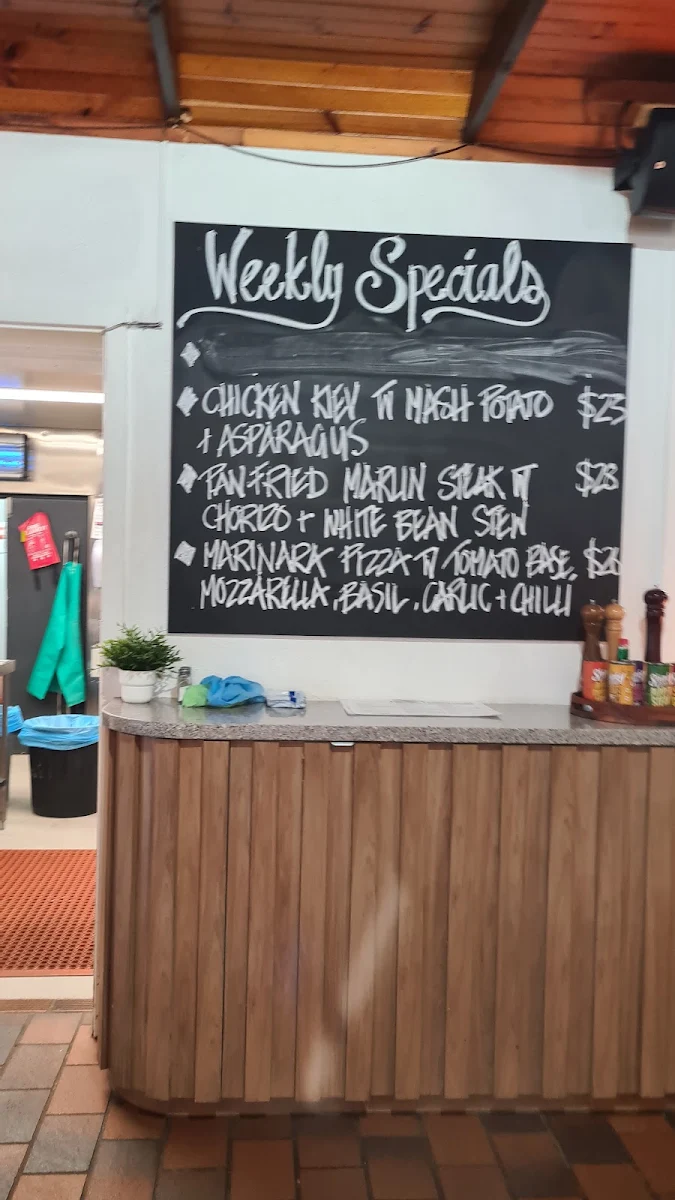 Weekly Specials
CHICKEN KIEV W MASH POTATO $23
+ ASPARAGUS
PAN-FRIED MARLIN STEAK W $28
CHORIZO + WHITE BEAN STEW
MARINARA PIZZA W TOMATO BASE,
MOZZARELLA, BASIL, GARLIC + CHILLI